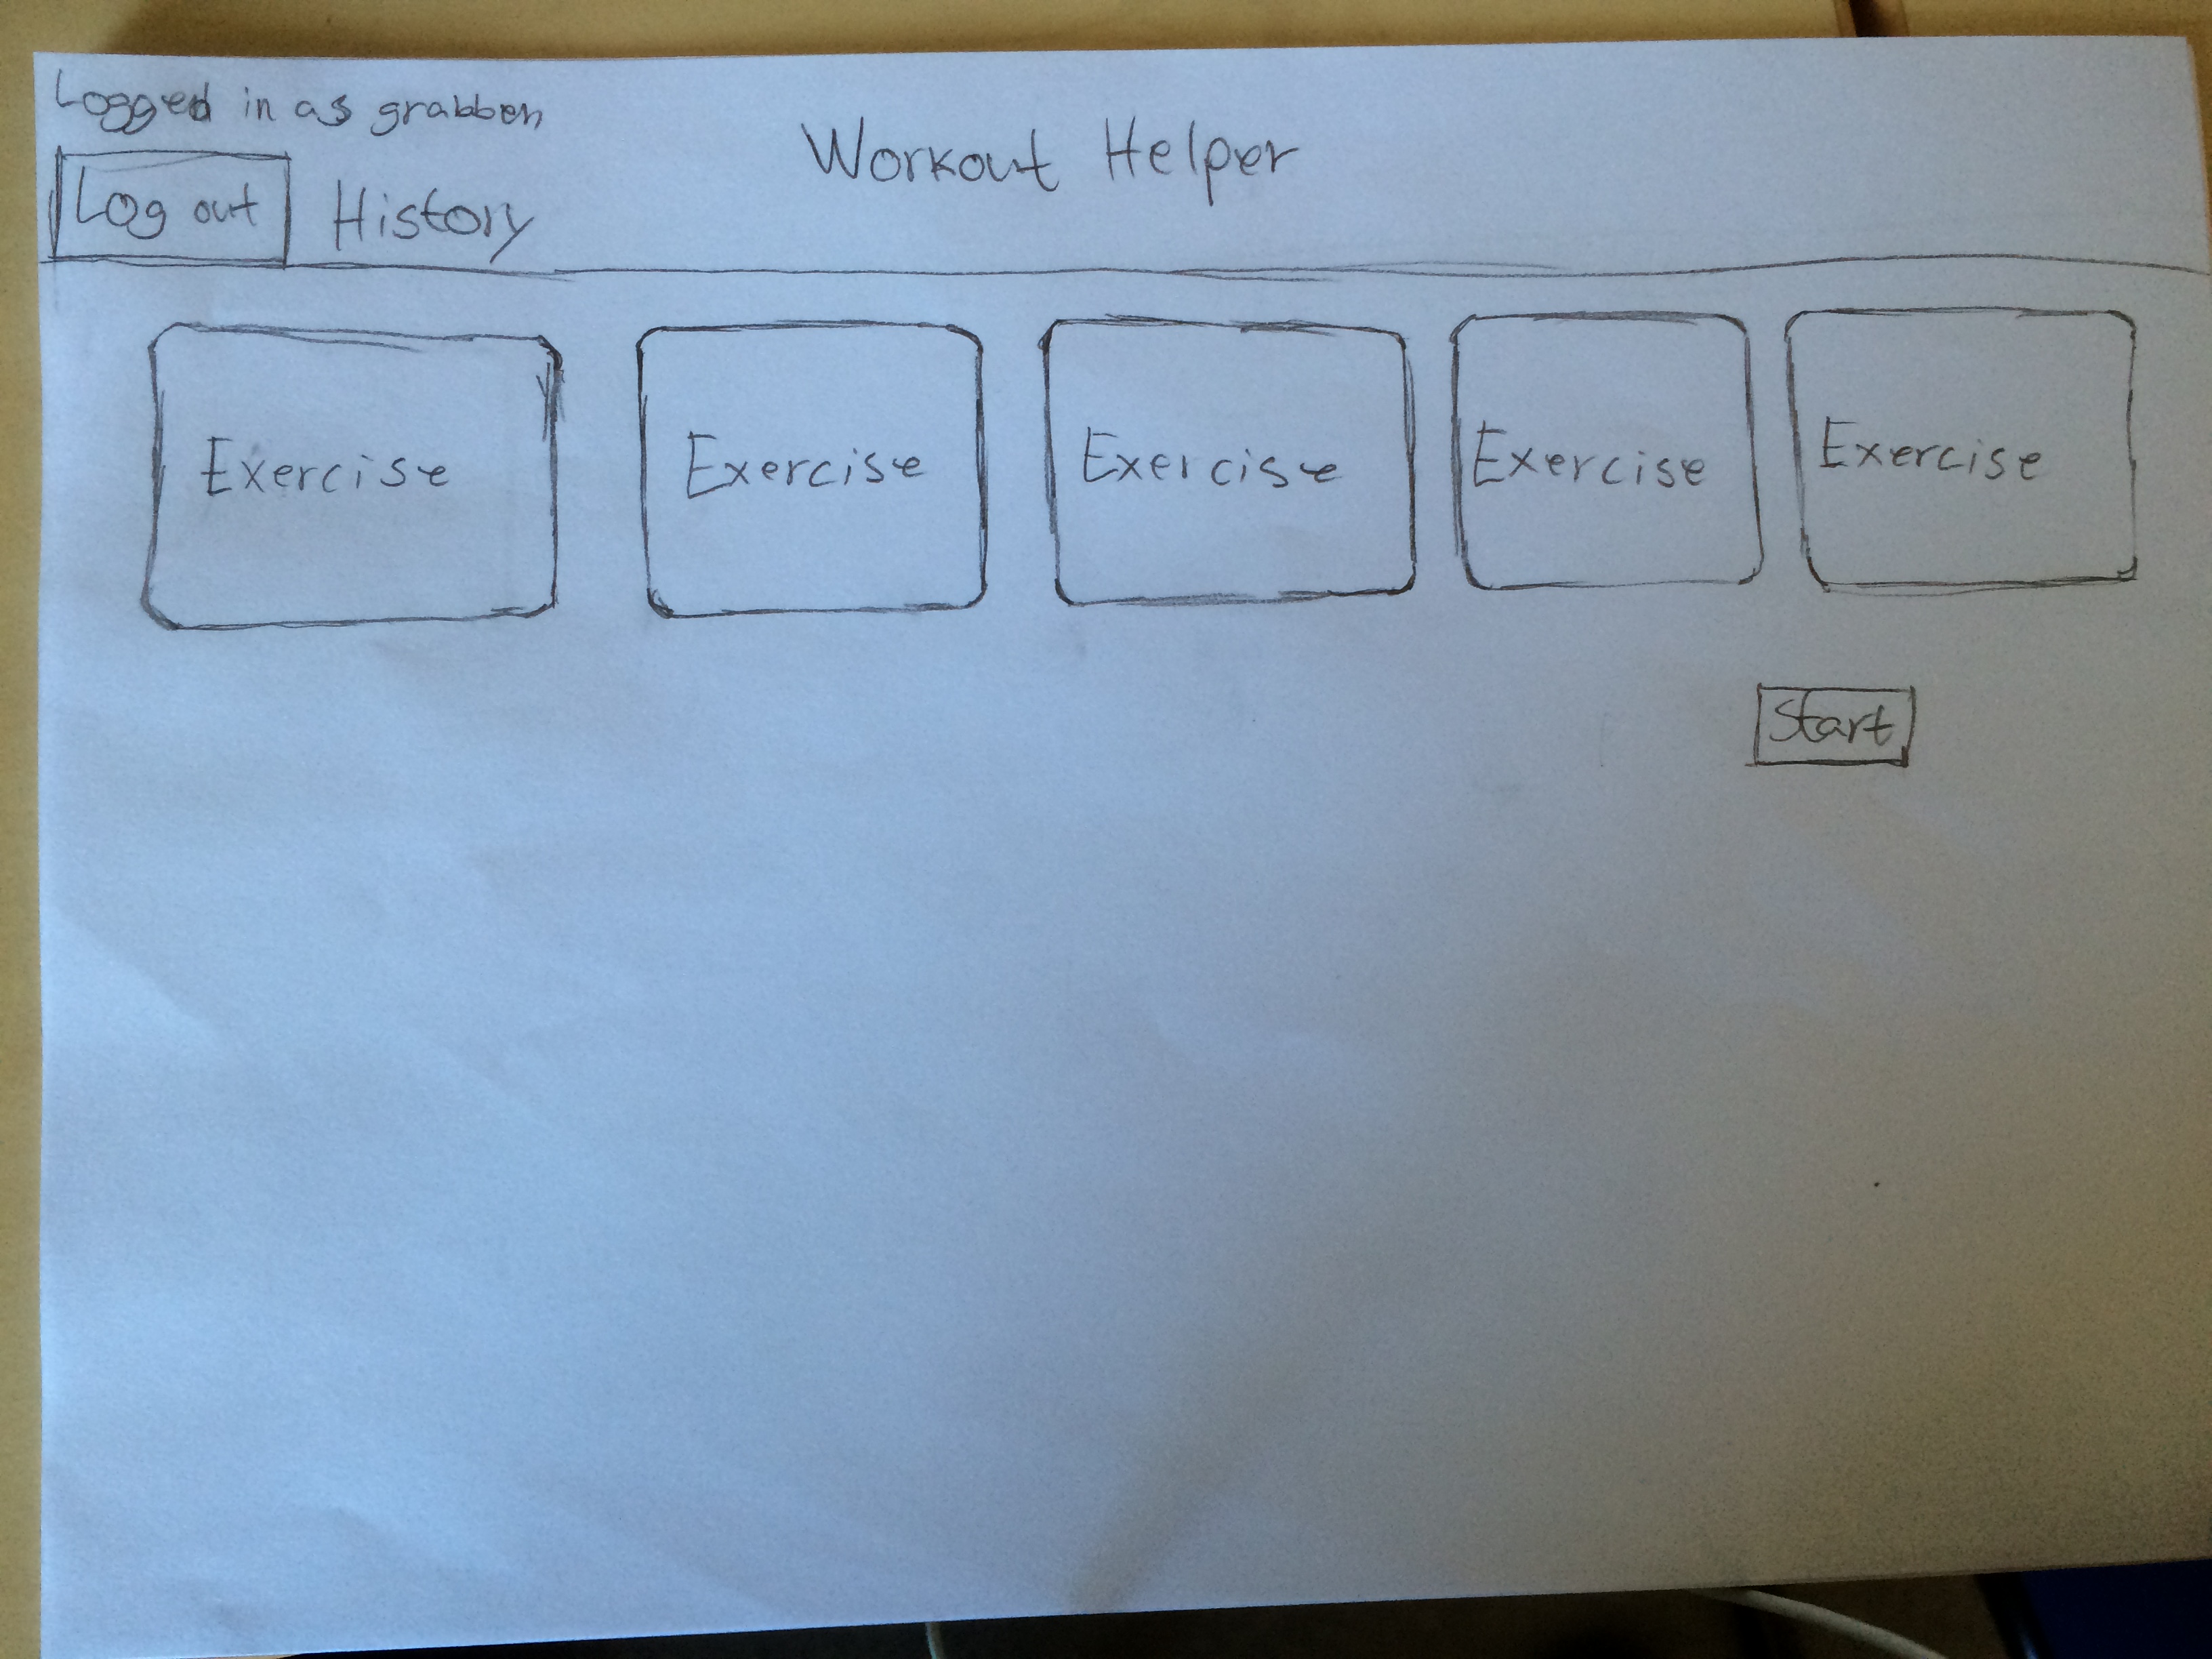 Logged in as grabben
Workout Helper
Log out History
Exercise Exercise Exercise Exercise Exercise
Start